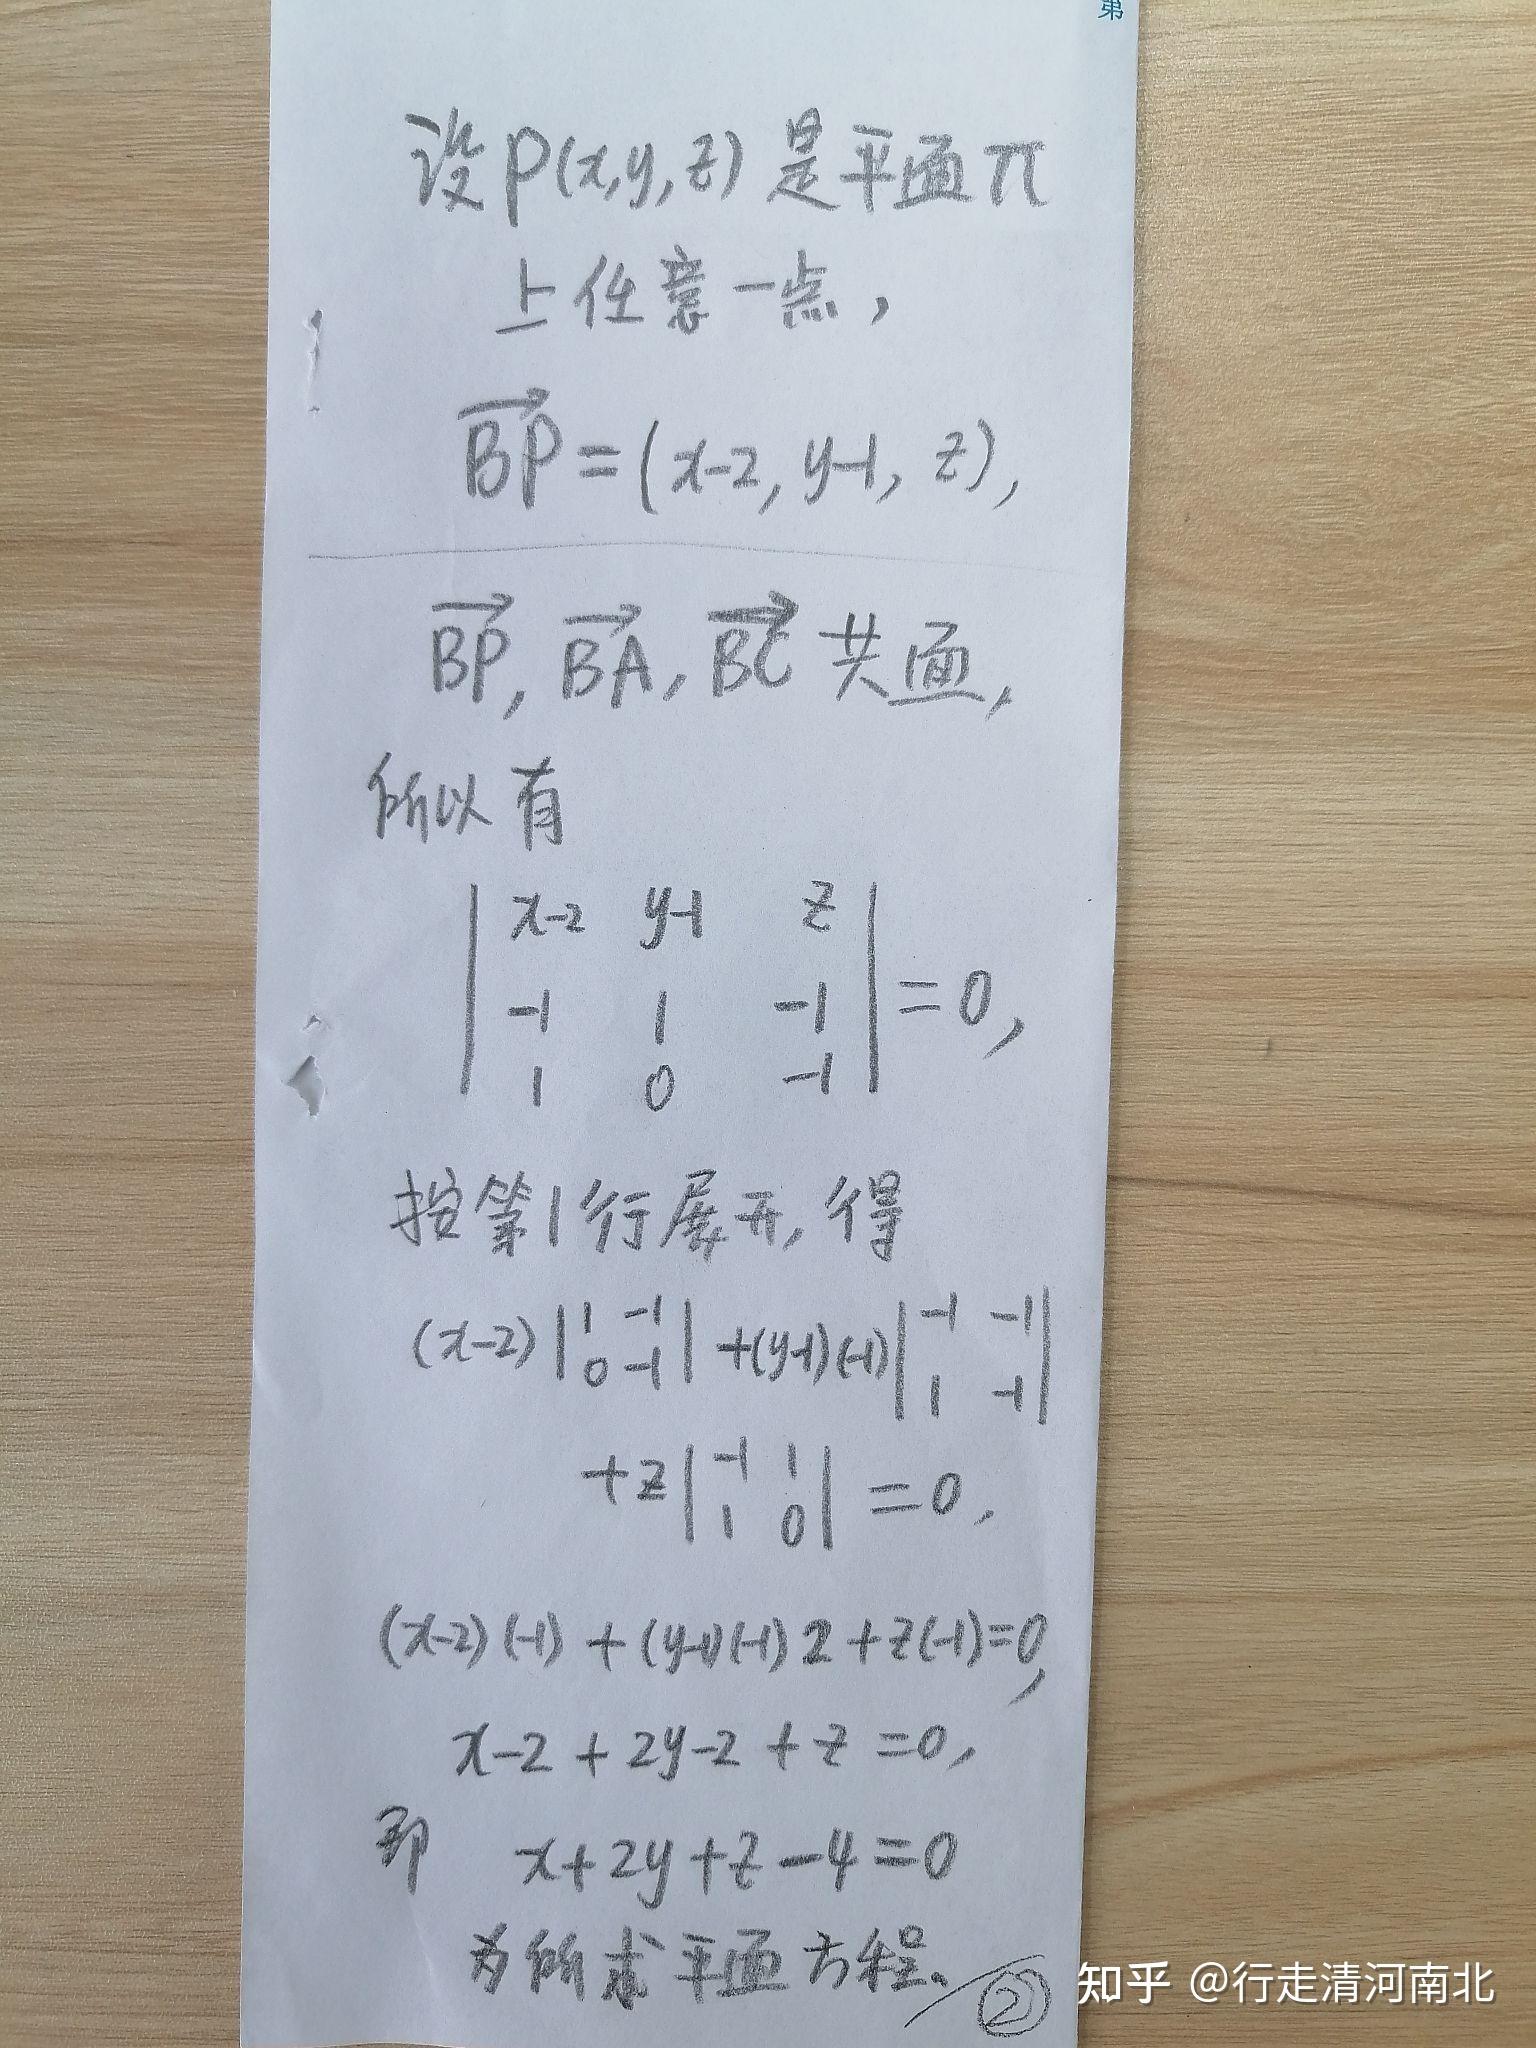 第
设P(x,y,z)是平面π
上任意一点,
$\overrightarrow{BP}$=(x-2, y-1, z),
$\overrightarrow{BP}$, $\overrightarrow{BA}$, $\overrightarrow{BC}$ 共面,
所以有
| x-2 y-1 z |
| -1 1 -1 | =0,
| 1 0 -1 |
按第1行展开, 得
(x-2)| 1 -1 ; 0 -1 | +(y-1)(-1)| -1 -1 ; 1 -1 |
+z| -1 1 ; 1 0 | =0,
(x-2)(-1)+(y-1)(-1)2+z(-1)=0,
x-2+2y-2+z=0,
即 x+2y+z-4=0
为所求平面方程。
②
知乎 @行走清河南北